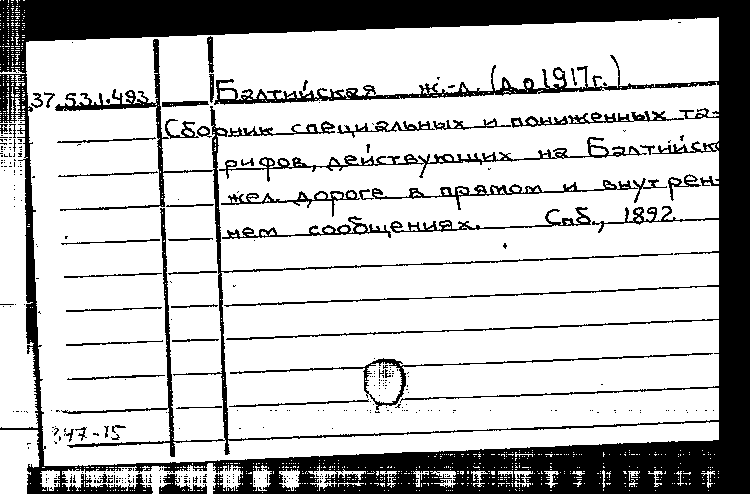 37.53.1.493 Балтийская ж.-д. (до 1917г.)
Сборник специальных и пониженных та-
рифов, действующих на Балтийск
жел. дороге в прямом и внутрен-
нем сообщениях. Спб., 1892.
347-15